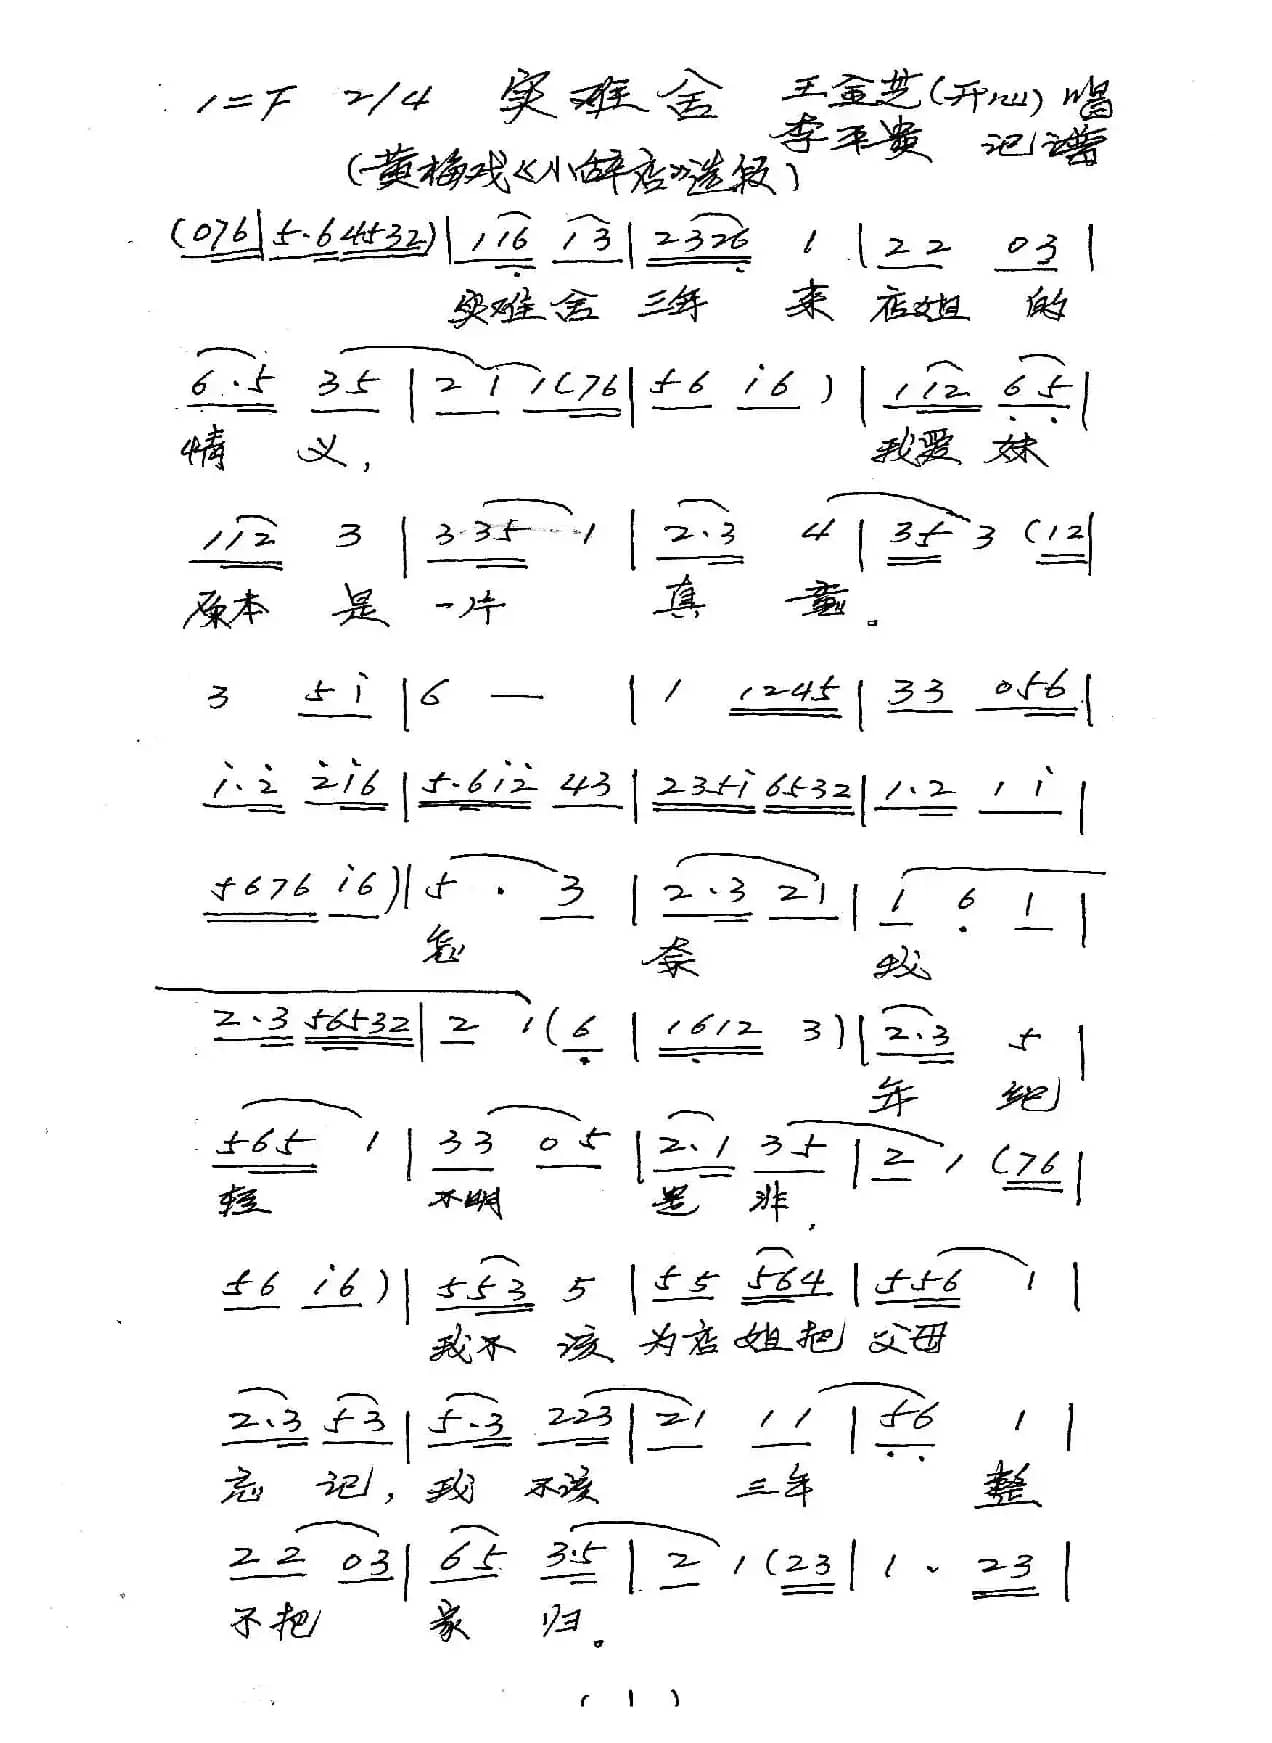 1=F 2/4 实难舍 王金芝(开心)唱
李平贵 记谱
(黄梅戏《小辞店》选段)
(076|5.64532)|116 13|2326 1|22 03|
实难舍 三年 来 店姐 的
6.5 35|21 1(76|56 i6)|112 65|
情 义, 我爱 妹
112 3|3.35 1|2.3 4|35 3 (12|
原本 是 一片 真 意。
3 5i|6 —|1 1245|33 056|
i.2̇ 2̇i6|5.6i2̇ 43|235i 6532|1.2 1i|
5676 i6)|5. 3|2.3 21|1 6 1|
怎 奈 我
2.3 56532|2 1(6|1612 3)|2.3 5|
年 纪
565 1|33 05|2.1 35|2 1 (76|
轻 不明 是 非,
56 i6)|553 5|55 564|556 1|
我不 该 为店 姐把 父母
2.3 53|5.3 223|21 11|56 1|
忘 记, 我 不该 三年 整
22 03|65 3.5|2 1(23|1. 23|
不把 家 归。
(1)